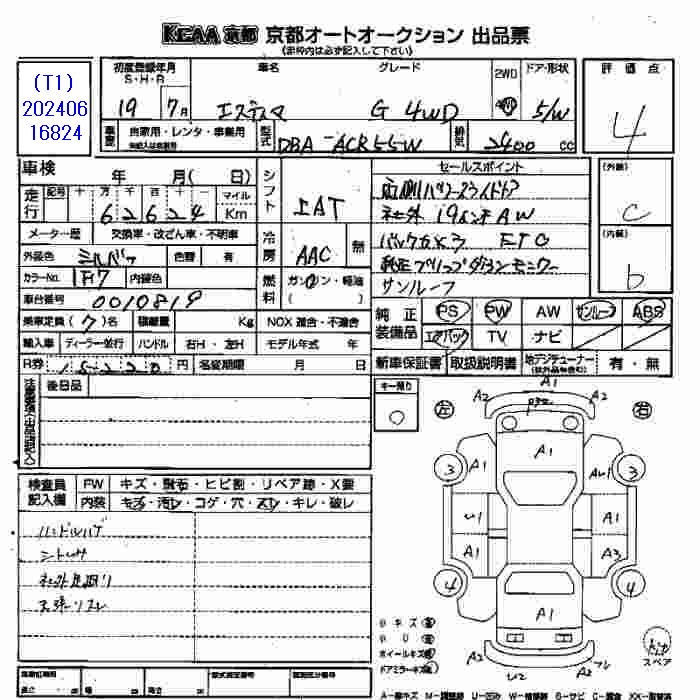 KCAA 京都 京都オートオークション 出品票
(赤枠内は必ず記入して下さい)
(T1)
202406
16824
初度登録年月 車名 グレード 2WD ドア・形状 評価点
S・H・R
19年 7月 エスティマ G 4WD 4WD 5/W 4
車歴 自家用・レンタ・事業用 型式 DBA-ACR55W 排気 2400 cc
車検 年 月( 日) シフト IAT セールスポイント (外装) C
走行 記号 十 万 千 百 十 一 マイル
62624 Km
右側パワースライドドア
社外 19インチ AW
メーター歴 交換車・改ざん車・不明車 冷房 AAC 無 バックカメラ ETC (内装) b
外装色 シルバー 色替 有 純正フリップダウンモニター
カラーNo. 1F7 内装色 燃料 ガソリン・軽油 サンルーフ
( )
車台番号 0010819
乗車定員(7)名 積載量 Kg NOX 適合・不適合 純正装備品 PS PW AW サンルーフ ABS
エアバック TV ナビ
輸入車 ディーラー・並行 ハンドル 右H・左H モデル年式 年
R券 15220 円 名変期限 月 日 新車保証書 取扱説明書 地デジチューナー 有・無
注意事項(出品店記入) 後日品 キー預り ○
左 右
A1
A2 A2
A1
A1 3 3
A1 A1
A1 A3
4 4
A1
A2 A2
U2
検査員記入欄 FW キズ・飛石・ヒビ割・リペア跡・X要
内装 キズ・汚レ・コゲ・穴・スレ・キレ・破レ
ハンドルハゲ
天張リスレ
ホイールキズ
ドアミラーキズ
スペア